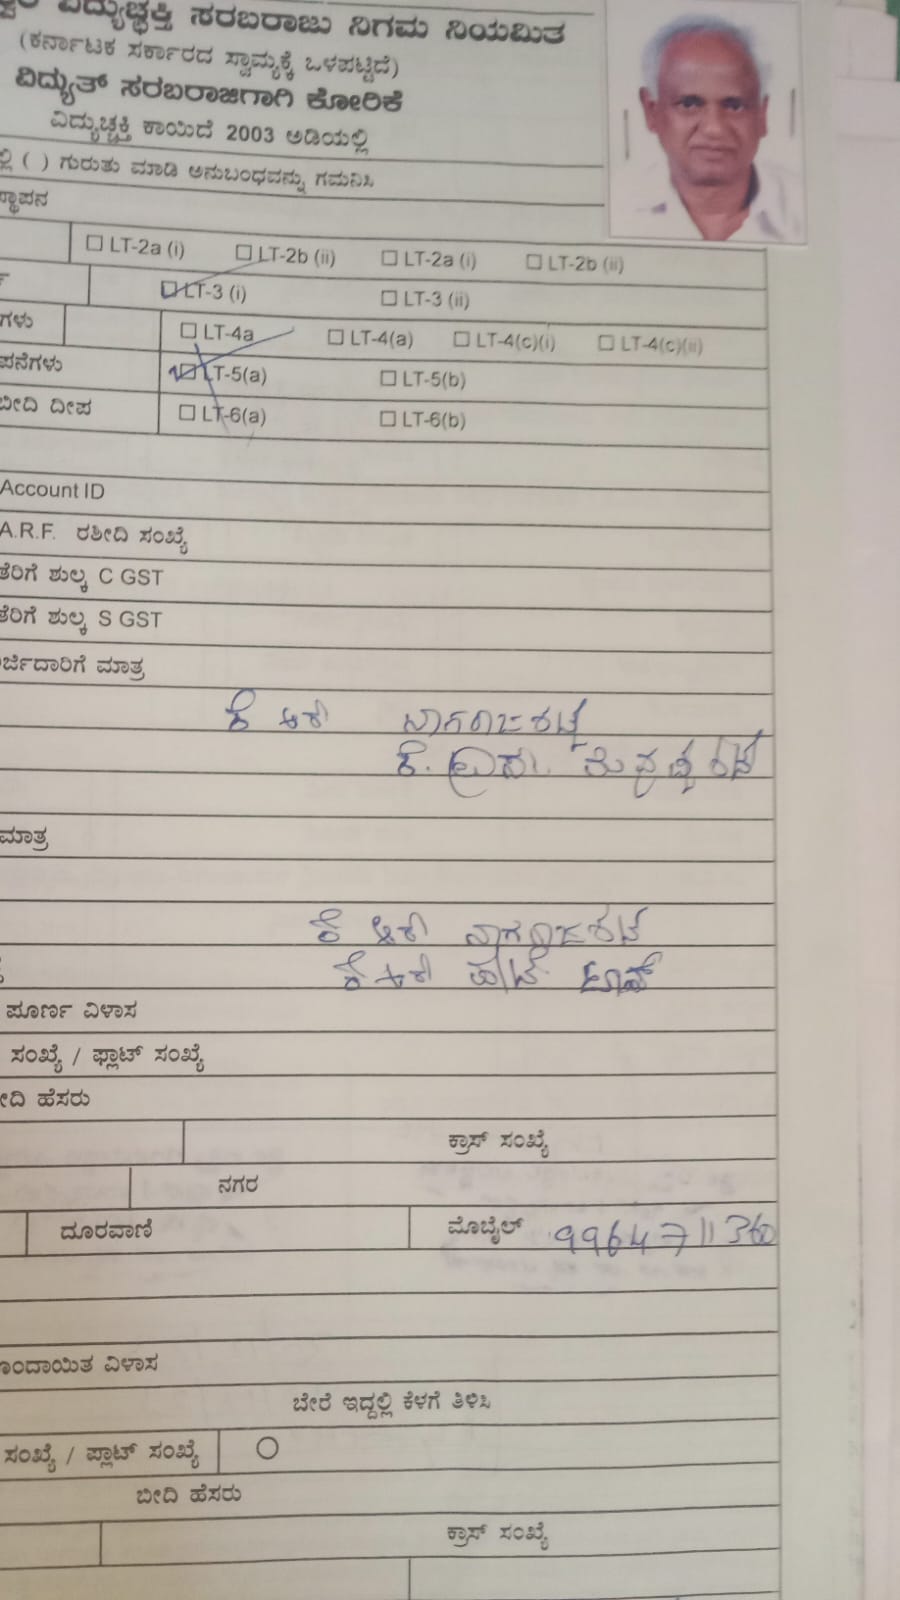 ವಿದ್ಯುಚ್ಛಕ್ತಿ ಸರಬರಾಜು ನಿಗಮ ನಿಯಮಿತ
(ಕರ್ನಾಟಕ ಸರ್ಕಾರದ ಸ್ವಾಮ್ಯಕ್ಕೆ ಒಳಪಟ್ಟಿದೆ)
ವಿದ್ಯುತ್ ಸರಬರಾಜಿಗಾಗಿ ಕೋರಿಕೆ
ವಿದ್ಯುಚ್ಛಕ್ತಿ ಕಾಯಿದೆ 2003 ಅಡಿಯಲ್ಲಿ
ಲ್ಲಿ ( ) ಗುರುತು ಮಾಡಿ ಅನುಬಂಧವನ್ನು ಗಮನಿಸಿ
ಸ್ಥಾಪನ
LT-2a (i) LT-2b (ii) LT-2a (i) LT-2b (ii)
LT-3 (i) LT-3 (ii)
ಗಳು LT-4a LT-4(a) LT-4(c)(i) LT-4(c)(ii)
ಪನೆಗಳು LT-5(a) LT-5(b)
ಬೀದಿ ದೀಪ LT-6(a) LT-6(b)
Account ID
A.R.F. ರಶೀದಿ ಸಂಖ್ಯೆ
ತೆರಿಗೆ ಶುಲ್ಕ C GST
ತೆರಿಗೆ ಶುಲ್ಕ S GST
ರ್ಜಿದಾರಿಗೆ ಮಾತ್ರ
ಕೆ ಆರ್ ನಾಗರಾಜಶೆಟ್ಟಿ
ಕೆ.
ಮಾತ್ರ
ಕೆ ಆರ್ ನಾಗರಾಜಶೆಟ್ಟಿ
ಕೆ ಆರ್
ಪೂರ್ಣ ವಿಳಾಸ
ಸಂಖ್ಯೆ / ಫ್ಲಾಟ್ ಸಂಖ್ಯೆ
ೀದಿ ಹೆಸರು
ಕ್ರಾಸ್ ಸಂಖ್ಯೆ
ನಗರ
ದೂರವಾಣಿ ಮೊಬೈಲ್ 9964711360
ೊಂದಾಯಿತ ವಿಳಾಸ
ಬೇರೆ ಇದ್ದಲ್ಲಿ ಕೆಳಗೆ ತಿಳಿಸಿ
ಸಂಖ್ಯೆ / ಪ್ಲಾಟ್ ಸಂಖ್ಯೆ
ಬೀದಿ ಹೆಸರು
ಕ್ರಾಸ್ ಸಂಖ್ಯೆ